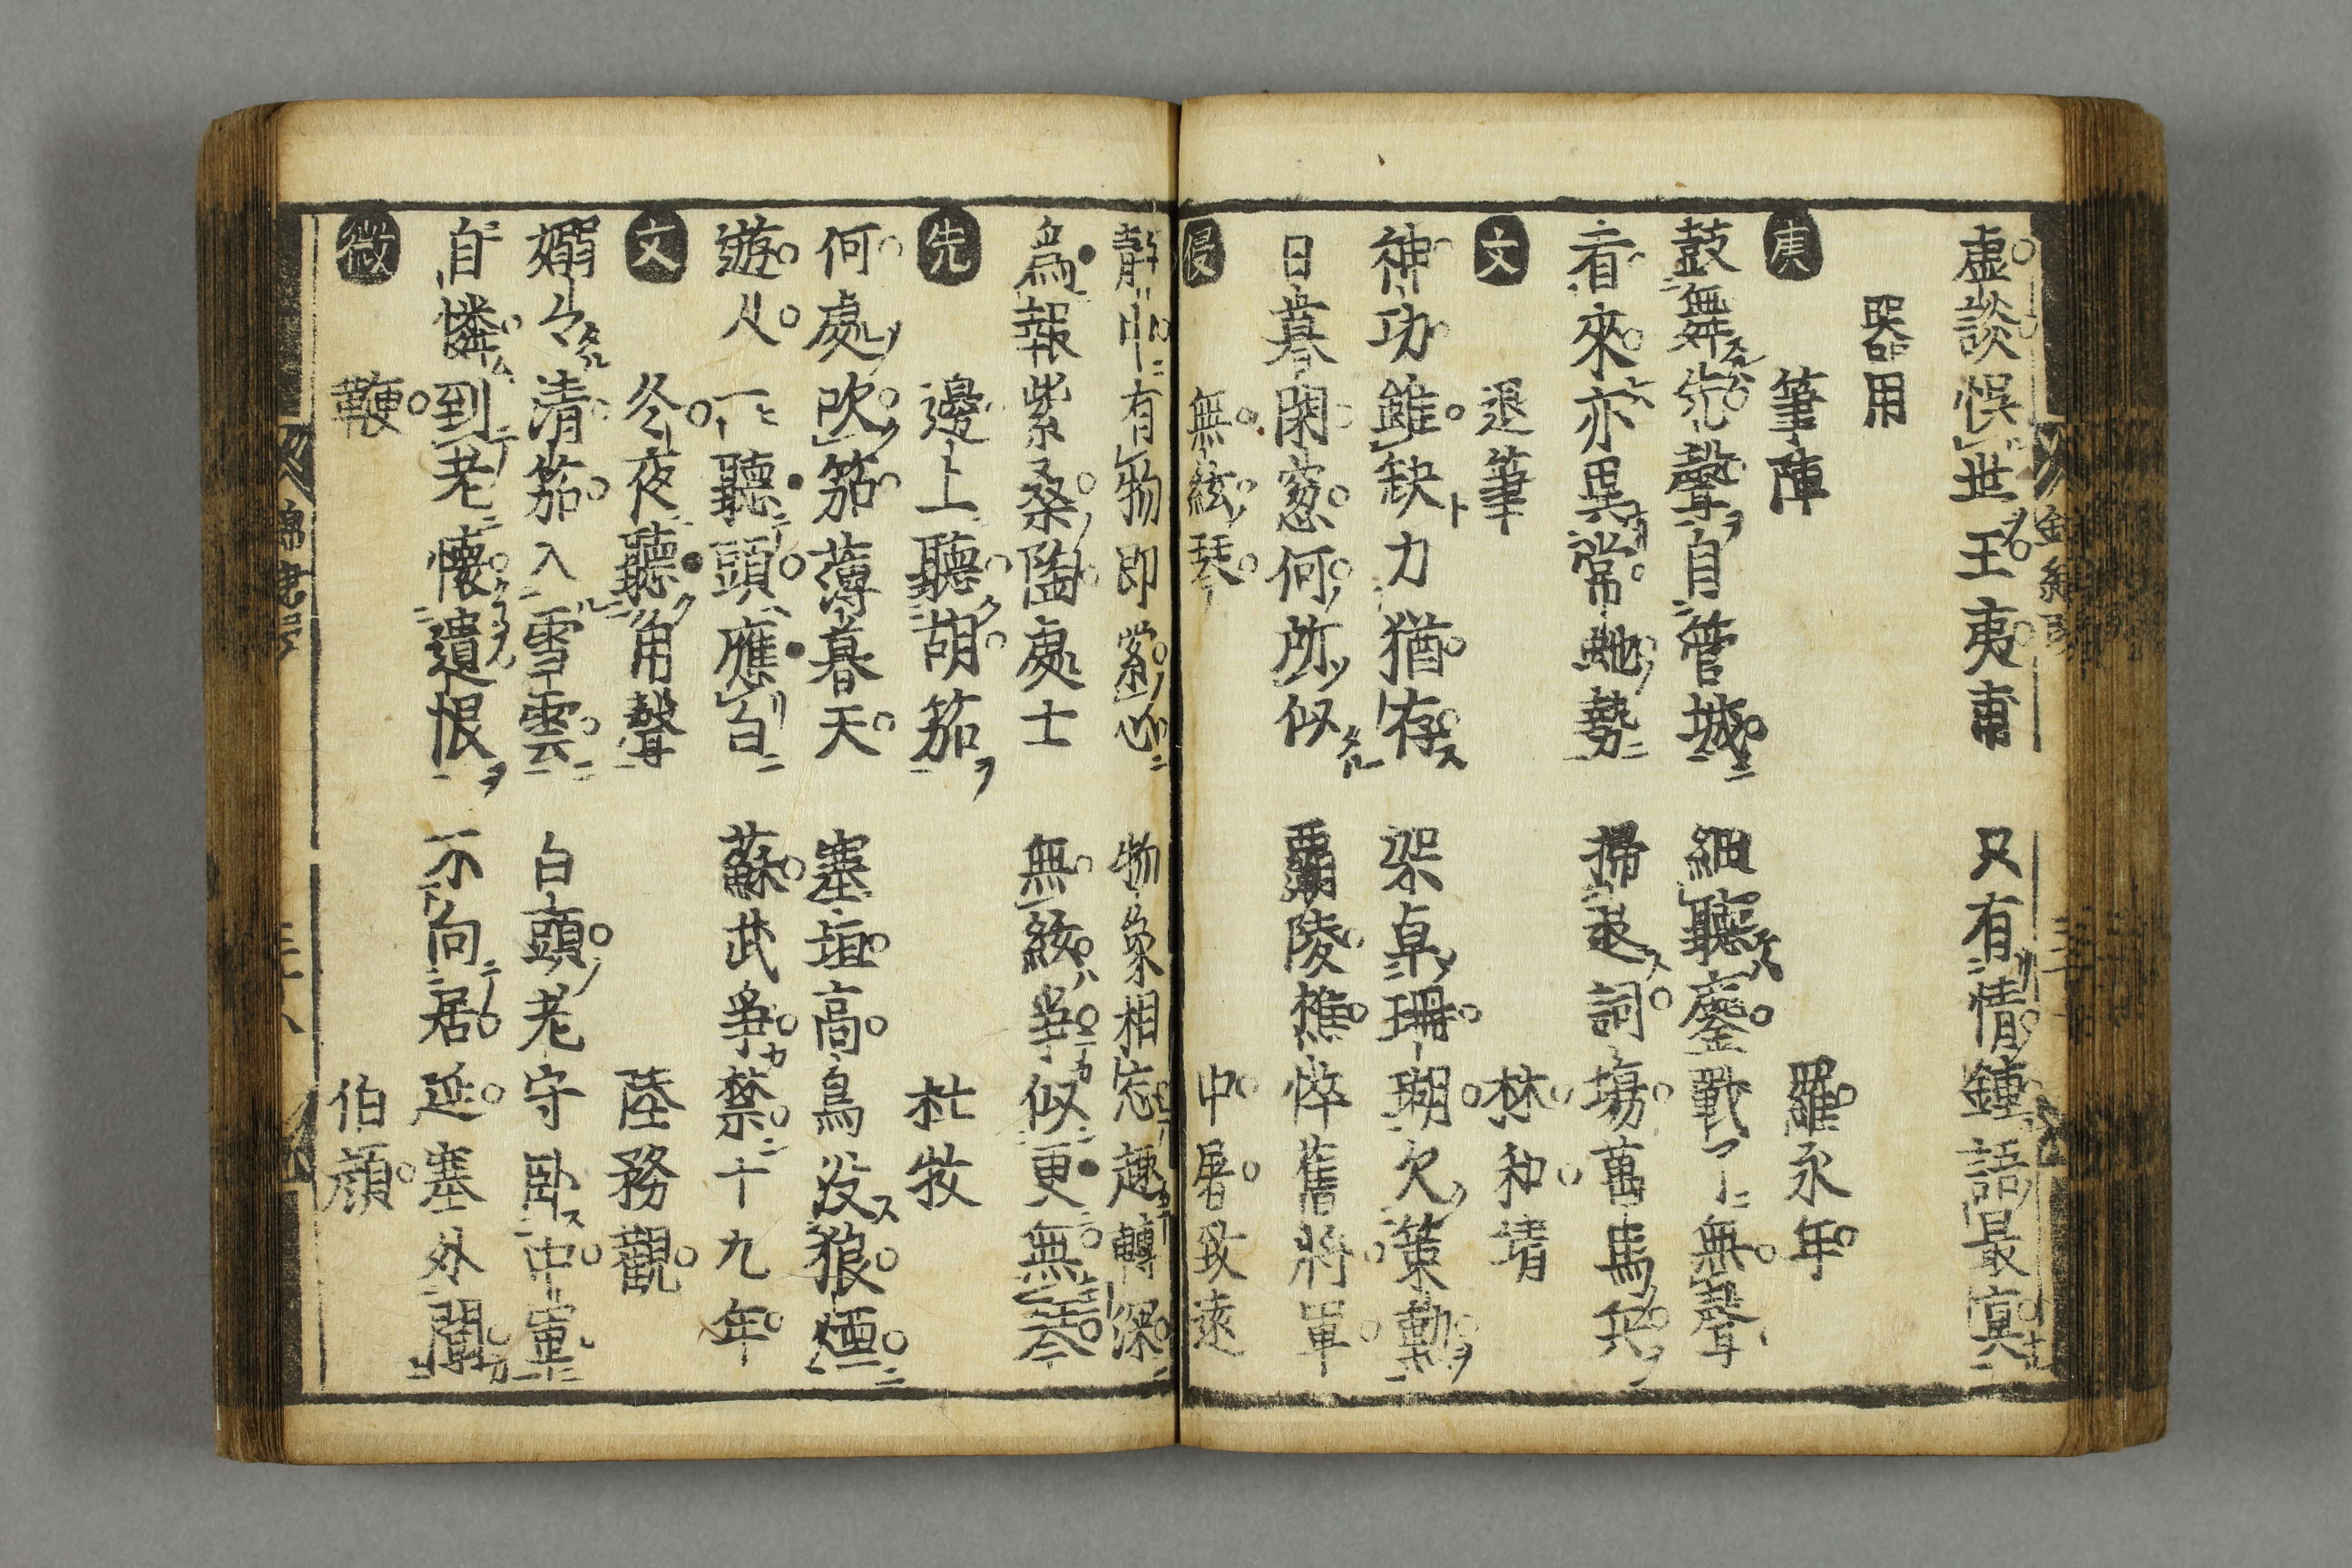 虛談悞世王夷甫　只有情鍾語最寘
器用
庚　筆陣　羅永年
鼓舞先聲自管城　細聽鏖戰了無聲
看來亦異常虵勢　掃退詞場萬馬兵
文　退筆　林和靖
神功雖缺力猶存　架卓珊瑚欠策勳
日暮閑窓何所似　覇陵憔悴舊將軍
侵　無絃琴　中屠致遠
靜中有物即縈心　物象相忘趣轉深
爲報紫桑陶處士　無絃爭似更無琴
先　邊上聽胡笳　杜牧
何處吹笳薄暮天　塞垣高鳥没狼煙
遊人一聽頭應白　蘇武爭禁十九年
文　冬夜聽角聲　陸務觀
嫋々清笳入雪雲　白頭老守卧中軍
自憐到老懷遺恨　不向居延塞外聞
微　鞭　伯顔